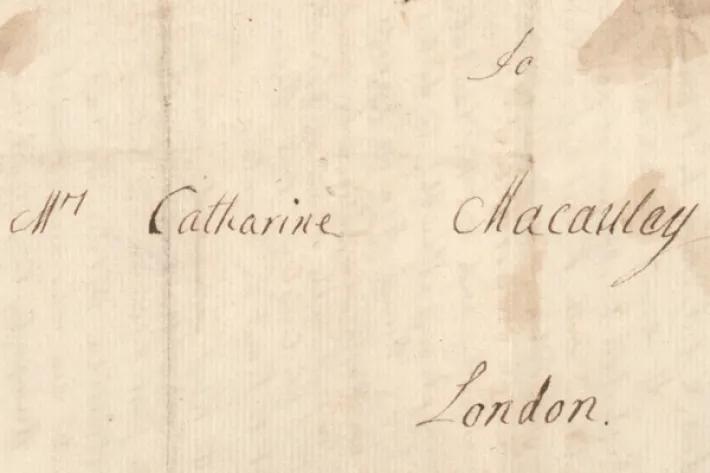 To
Mrs Catharine Macaulay
London.